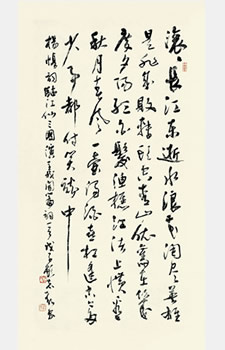 滚滚长江东逝水浪花淘尽英雄
是非成败转头空青山依旧在几
度夕阳红白发渔樵江渚上惯看
秋月春风一壶浊酒喜相逢古今多
少事都付笑谈中
杨慎词临江仙三国演义开篇词一首戊子